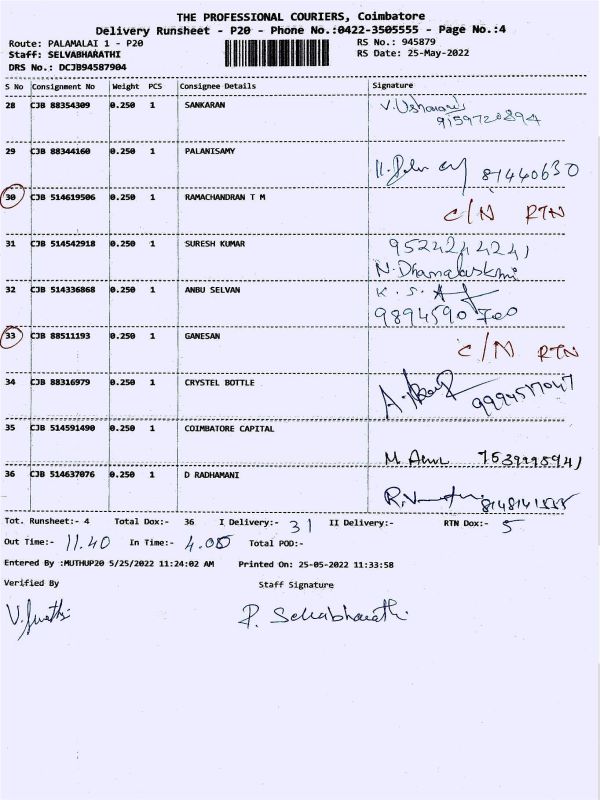 THE PROFESSIONAL COURIERS, Coimbatore
Delivery Runsheet - P20 - Phone No.:0422-3505555 - Page No.:4
Route: PALAMALAI 1 - P20 RS No.: 945879
Staff: SELVABHARATHI RS Date: 25-May-2022
DRS No.: DCJB94587904
S No Consignment No Weight PCS Consignee Details Signature
28 CJB 88354309 0.250 1 SANKARAN V. Usharani
9159720894
29 CJB 88344160 0.250 1 PALANISAMY 81440630
30 CJB 514619506 0.250 1 RAMACHANDRAN T M C/N RTN
31 CJB 514542918 0.250 1 SURESH KUMAR 9524244241
N. Dhanalakshmi
32 CJB 514336868 0.250 1 ANBU SELVAN K. S.
9894590700
33 CJB 88511193 0.250 1 GANESAN C/N RTN
34 CJB 88316979 0.250 1 CRYSTEL BOTTLE 9994517047
35 CJB 514591490 0.250 1 COIMBATORE CAPITAL M.
36 CJB 514637076 0.250 1 D RADHAMANI
Tot. Runsheet:- 4 Total Dox:- 36 I Delivery:- 31 II Delivery:- RTN Dox:- 5
Out Time:- 11.40 In Time:- 4.00 Total POD:-
Entered By :MUTHUP20 5/25/2022 11:24:02 AM Printed On: 25-05-2022 11:33:58
Verified By Staff Signature
P. Selvabharathi